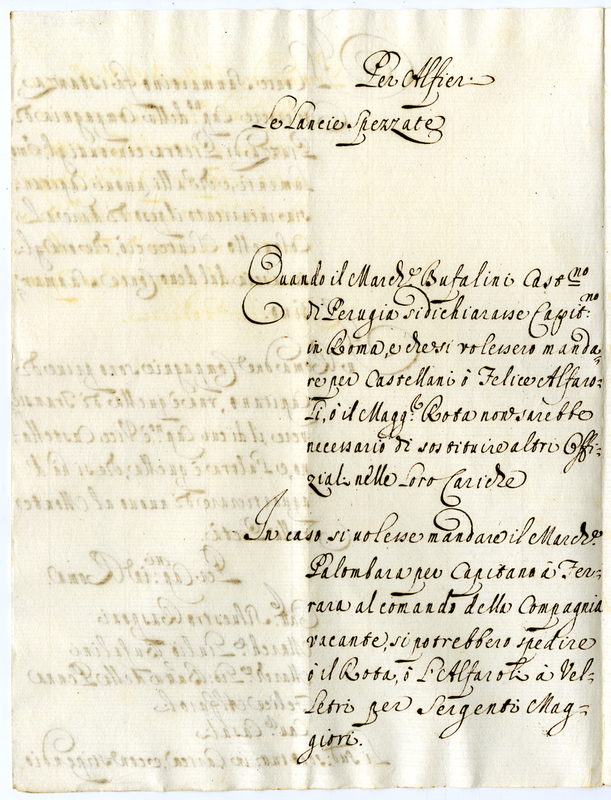 Per Alfier.
Le Lancie Spezzate
Quando il March.e Bufalini Cast.no
di Perugia si dichiarasse Capit.no
in Roma, e che si volessero manda-
re per Castellani ò Felice Alfaro-
li, ò il Magg.e Rota non sarebbe
necessario di sostituire altri Offi-
ziali nelle loro Cariche
In caso si volesse mandare il March.e
Palombara per Capitano à Fer-
rara al comando della Compagnia
vacante, si potrebbero spedire
ò il Rota, ò l'Alfaroli à Vel-
letri per Sergenti Mag-
giori.